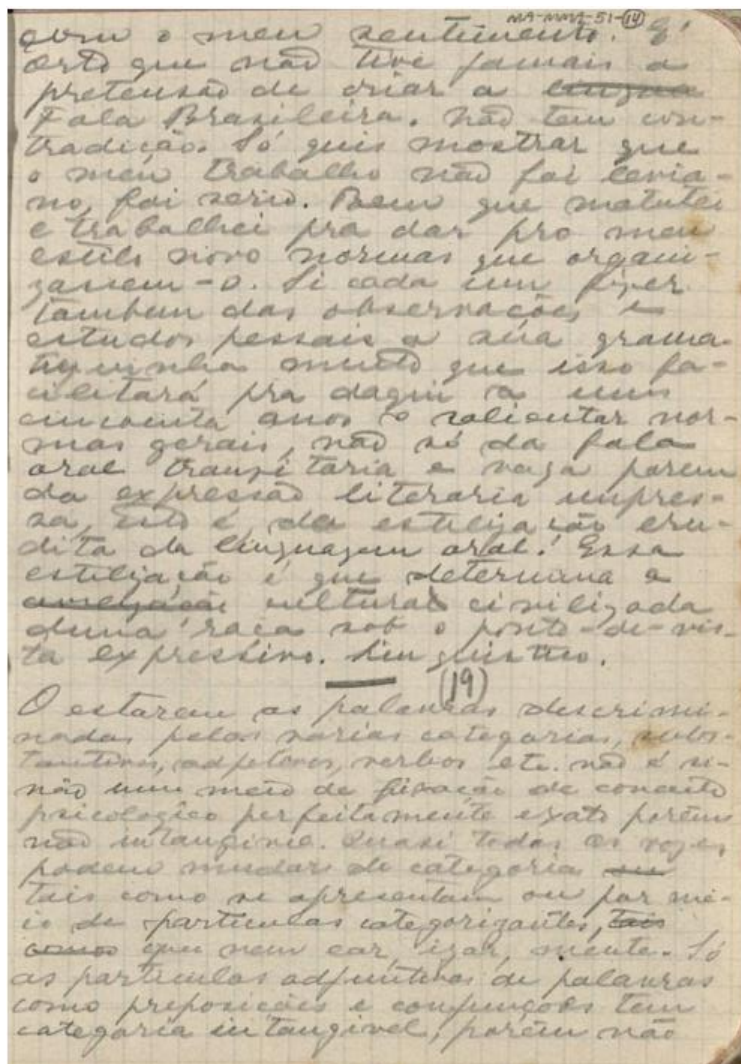 MA-MMA-51-14
com o meu sentimento. E'
certo que não tive jamais a
pretensão de criar a lingua
Fala Brasileira. Não tem con-
tradição. Só quis mostrar que
o meu trabalho não foi levia-
no, foi serio. Bem que matutei
e trabalhei pra dar pro meu
estilo novo normas que organi-
zassem-o. Si cada um fizer
tambem das observações e
estudos pessoais a sua grama-
tiquinha muito que isso fa-
cilitará pra daqui a uns
cincoenta anos o salientar nor-
mas gerais, não só da fala
oral transitaria e vaga porem
da expressão literaria impres-
sa, isto é, da estilização eru-
dita da linguagem oral. Essa
estilização é que determina a
cultural civilizada
duma raça sob o ponto-de-vis-
ta expressivo. Linguistico.
(19)
O estarem as palavras descrimi-
nadas pelas varias categorias, subs-
tantivos, adjetivos, verbos etc. não é si-
não um meio de fixação de conceito
psicologico perfeitamente exato porém
não intangivel. Quasi todas as vozes
podem mudar de categoria ou
tais como se apresentam ou por me-
io de particulas categorizantes, tais
como que nem ear, izar, mente. Só
as particulas adjuntivas de palavras
como preposições e conjunções tem
categoria intangivel, porém não